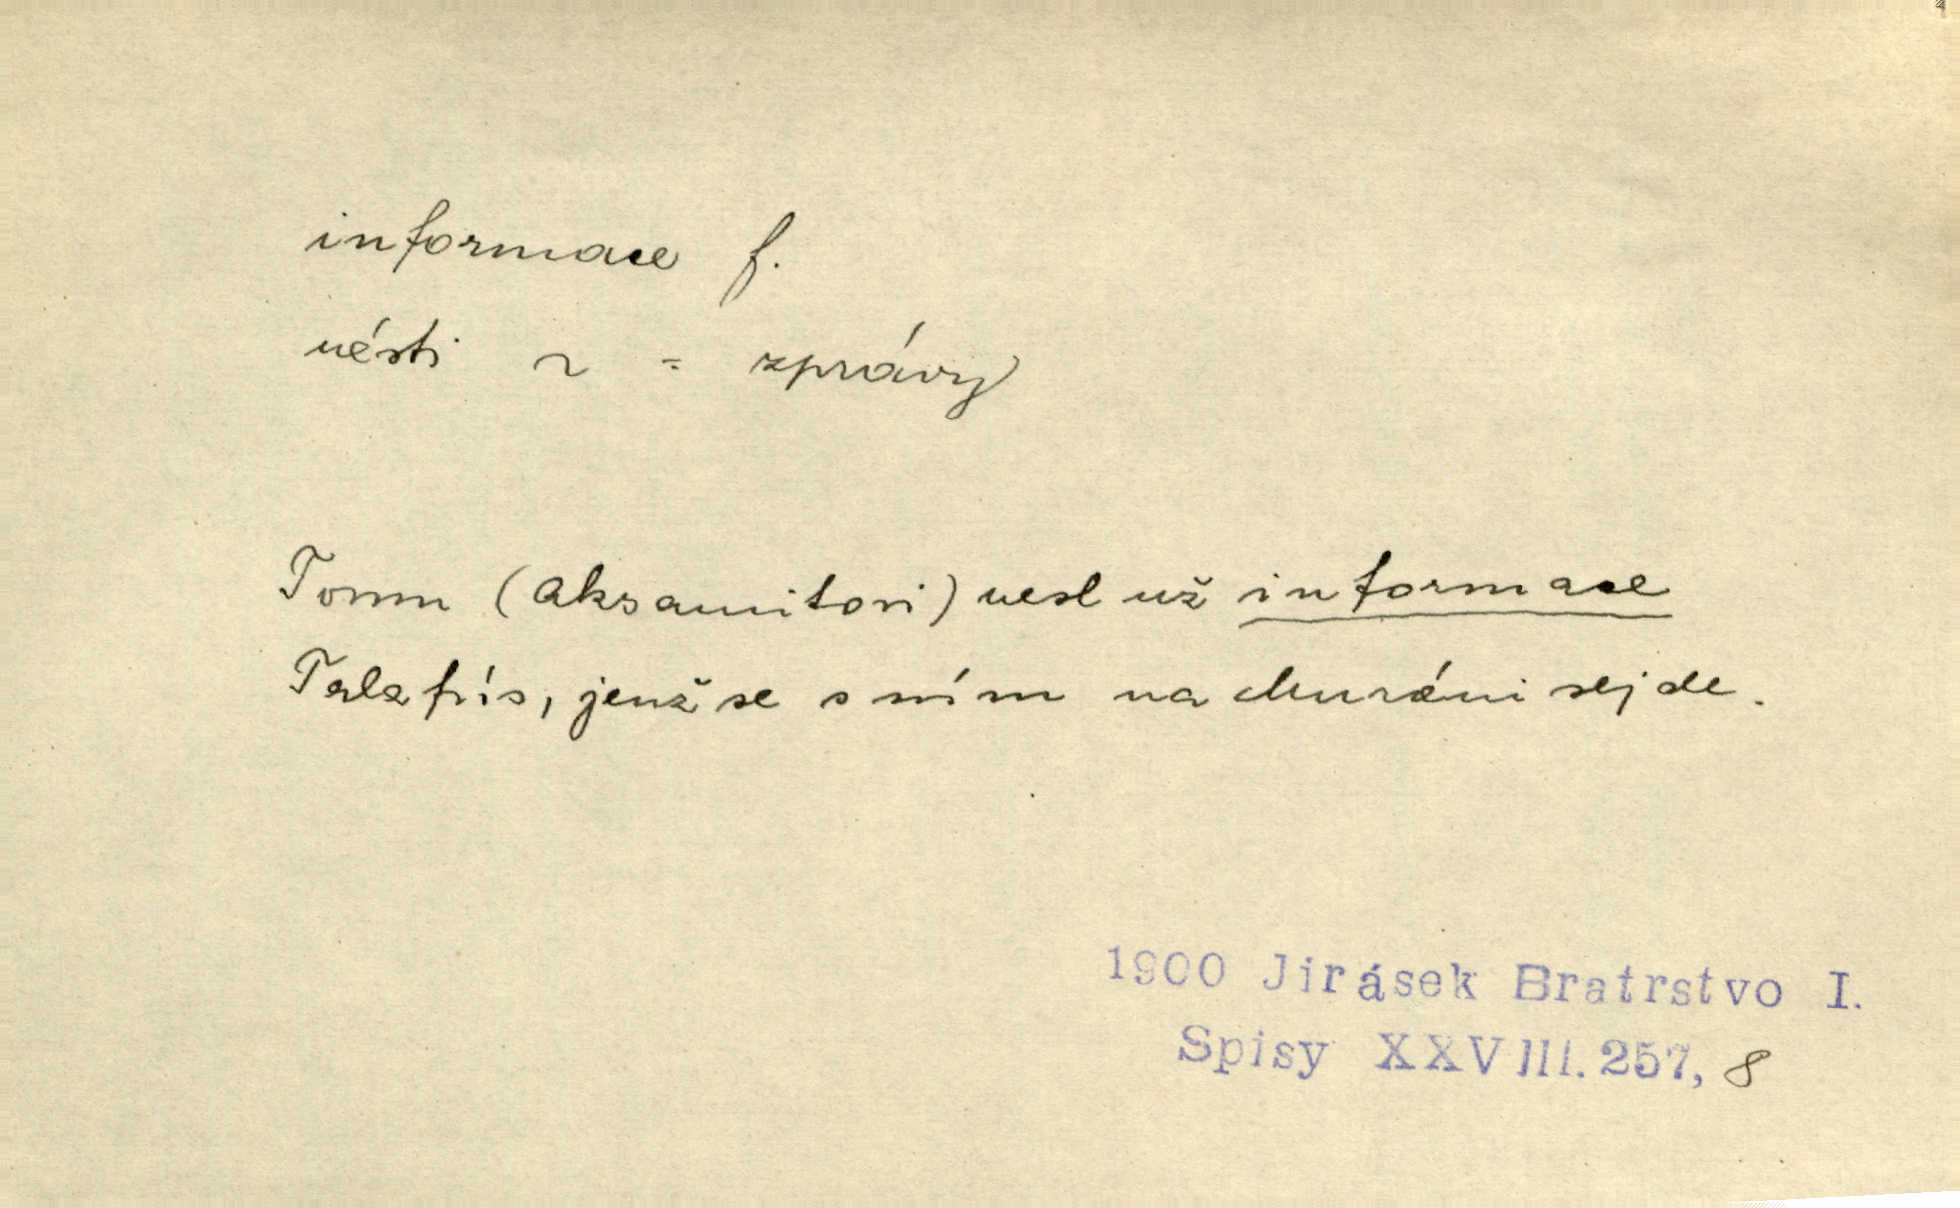 informace f.
nésti ~ = zprávy
Tomu (Aksamitovi) nesl už informace
Talafús, jenž se s ním na Muráni sejde.
1900 Jirásek Bratrstvo I.
Spisy XXVIII. 257, 8